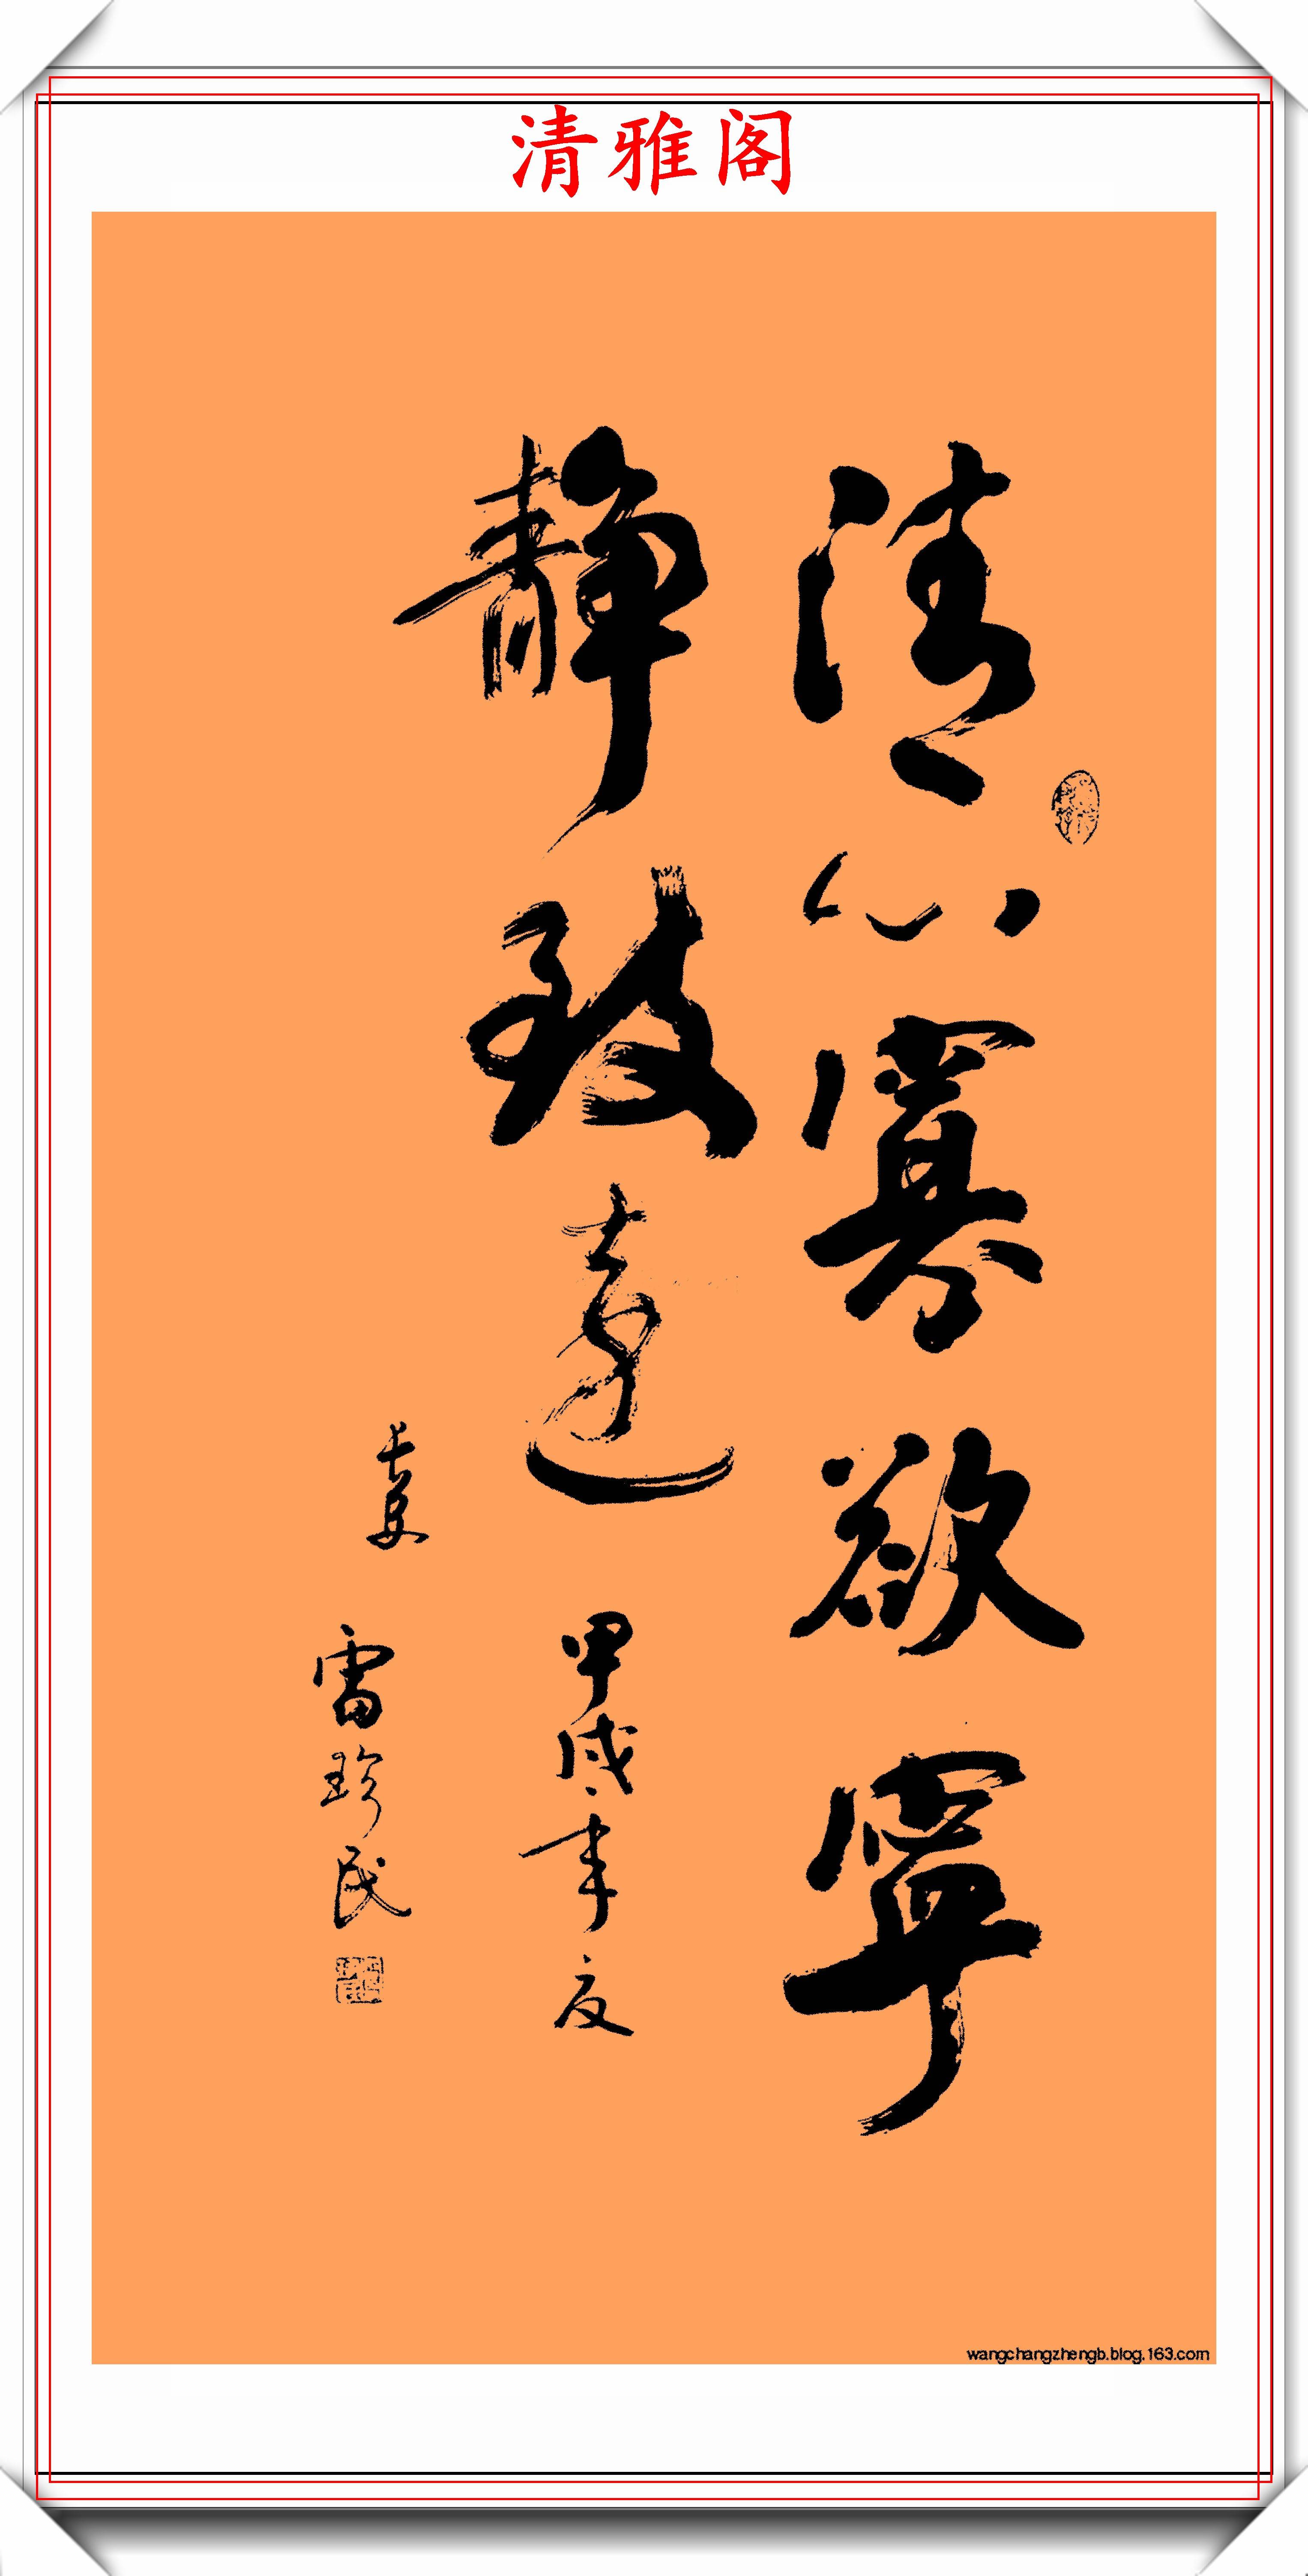 清雅阁
清心寡欲寧
静致遠
甲戌年夏
長安
雷珍民
wangchangzhengb.blog.163.com